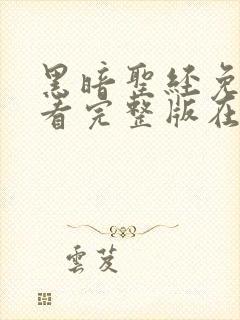 黑暗聖經免
看完整版在
雲芨